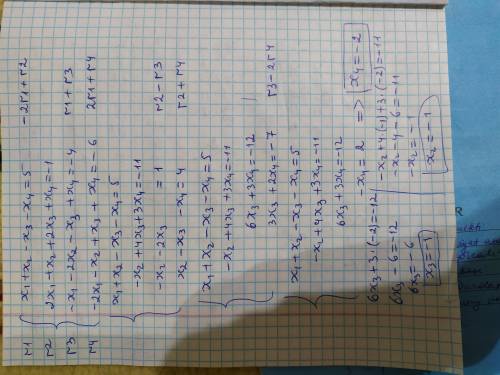 r1 x₁+x₂-x₃-x₄=5 -2r1+r2
r2 2x₁+x₂+2x₃+x₄=-1
r3 -x₁-2x₂-x₃+x₄=-4 r1+r3
r4 -2x₁-x₂+x₃+x₄=-6 2r1+r4
x₁+x₂-x₃-x₄=5
-x₂+4x₃+3x₄=-11
-x₂-2x₃ =1 r2-r3
x₂-x₃-x₄=4 r2+r4
x₁+x₂-x₃-x₄=5
-x₂+4x₃+3x₄=-11
6x₃+3x₄=-12
3x₃+2x₄=-7 r3-2r4
x₁+x₂-x₃-x₄=5
-x₂+4x₃+3x₄=-11
6x₃+3x₄=-12
-x₄=2 => x₄=-2
6x₃+3·(-2)=-12
6x₃-6=-12
6x₃=-6
x₃=-1
-x₂+4·(-1)+3·(-2)=-11
-x₂-4-6=-11
-x₂=-1
x₂=-1